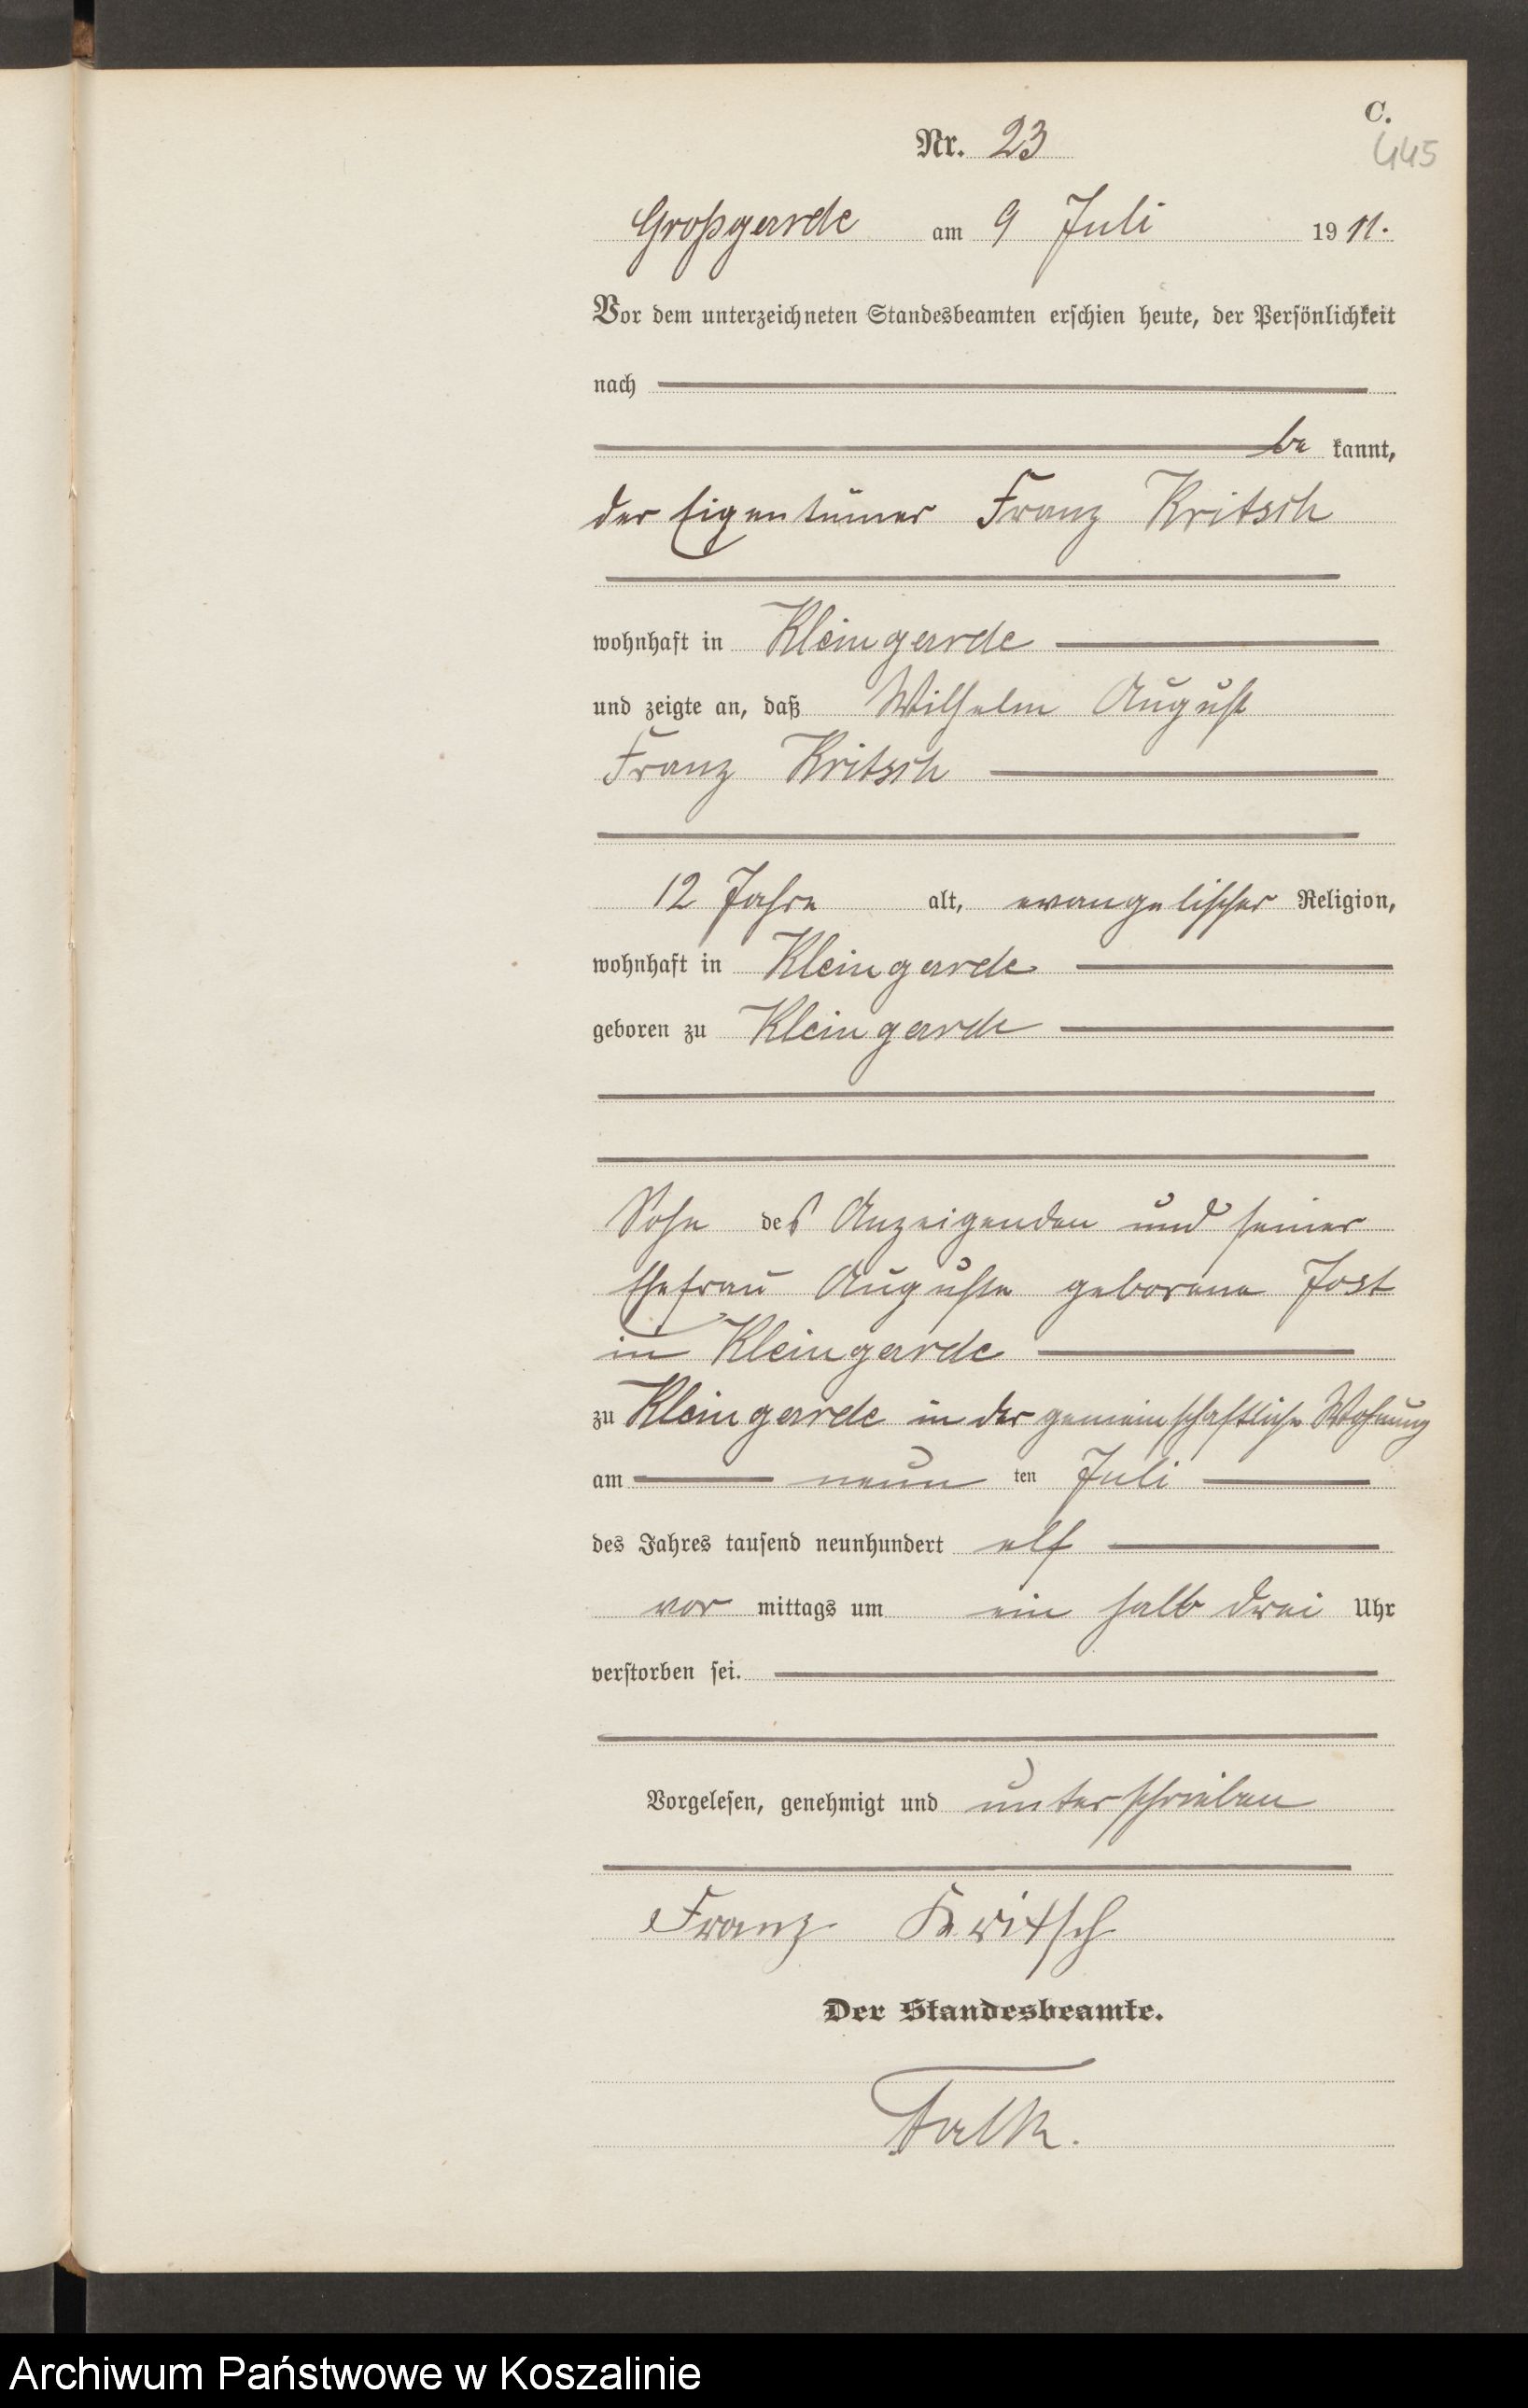 C.
445
Nr. 23
Großgarde am 9 Juli 1911.
Vor dem unterzeichneten Standesbeamten erschien heute, der Persönlichkeit
nach
be kannt,
der Eigentümer Franz Kritsch
wohnhaft in Kleingarde
und zeigte an, daß Wilhelm August
Franz Kritsch
12 Jahre alt, evangelischer Religion,
wohnhaft in Kleingarde
geboren zu Kleingarde
Sohn des Anzeigenden und seiner
Ehefrau Auguste geborene Jost
in Kleingarde
zu Kleingarde in der gemeinschaftliche Wohnung
am neun ten Juli
des Jahres tausend neunhundert elf
vor mittags um ein halb drei Uhr
verstorben sei.
Vorgelesen, genehmigt und unterschrieben
Franz Kritsch
Der Standesbeamte.
Falk.
Archiwum Państwowe w Koszalinie